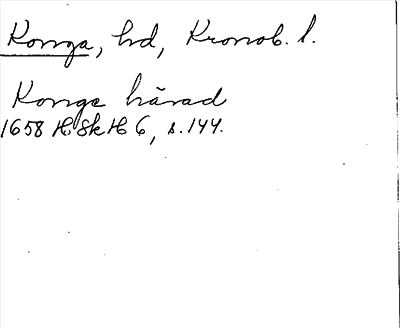 Konga, hd, Kronob. l.
Konga härad
1658 HSkH 6, s. 144.